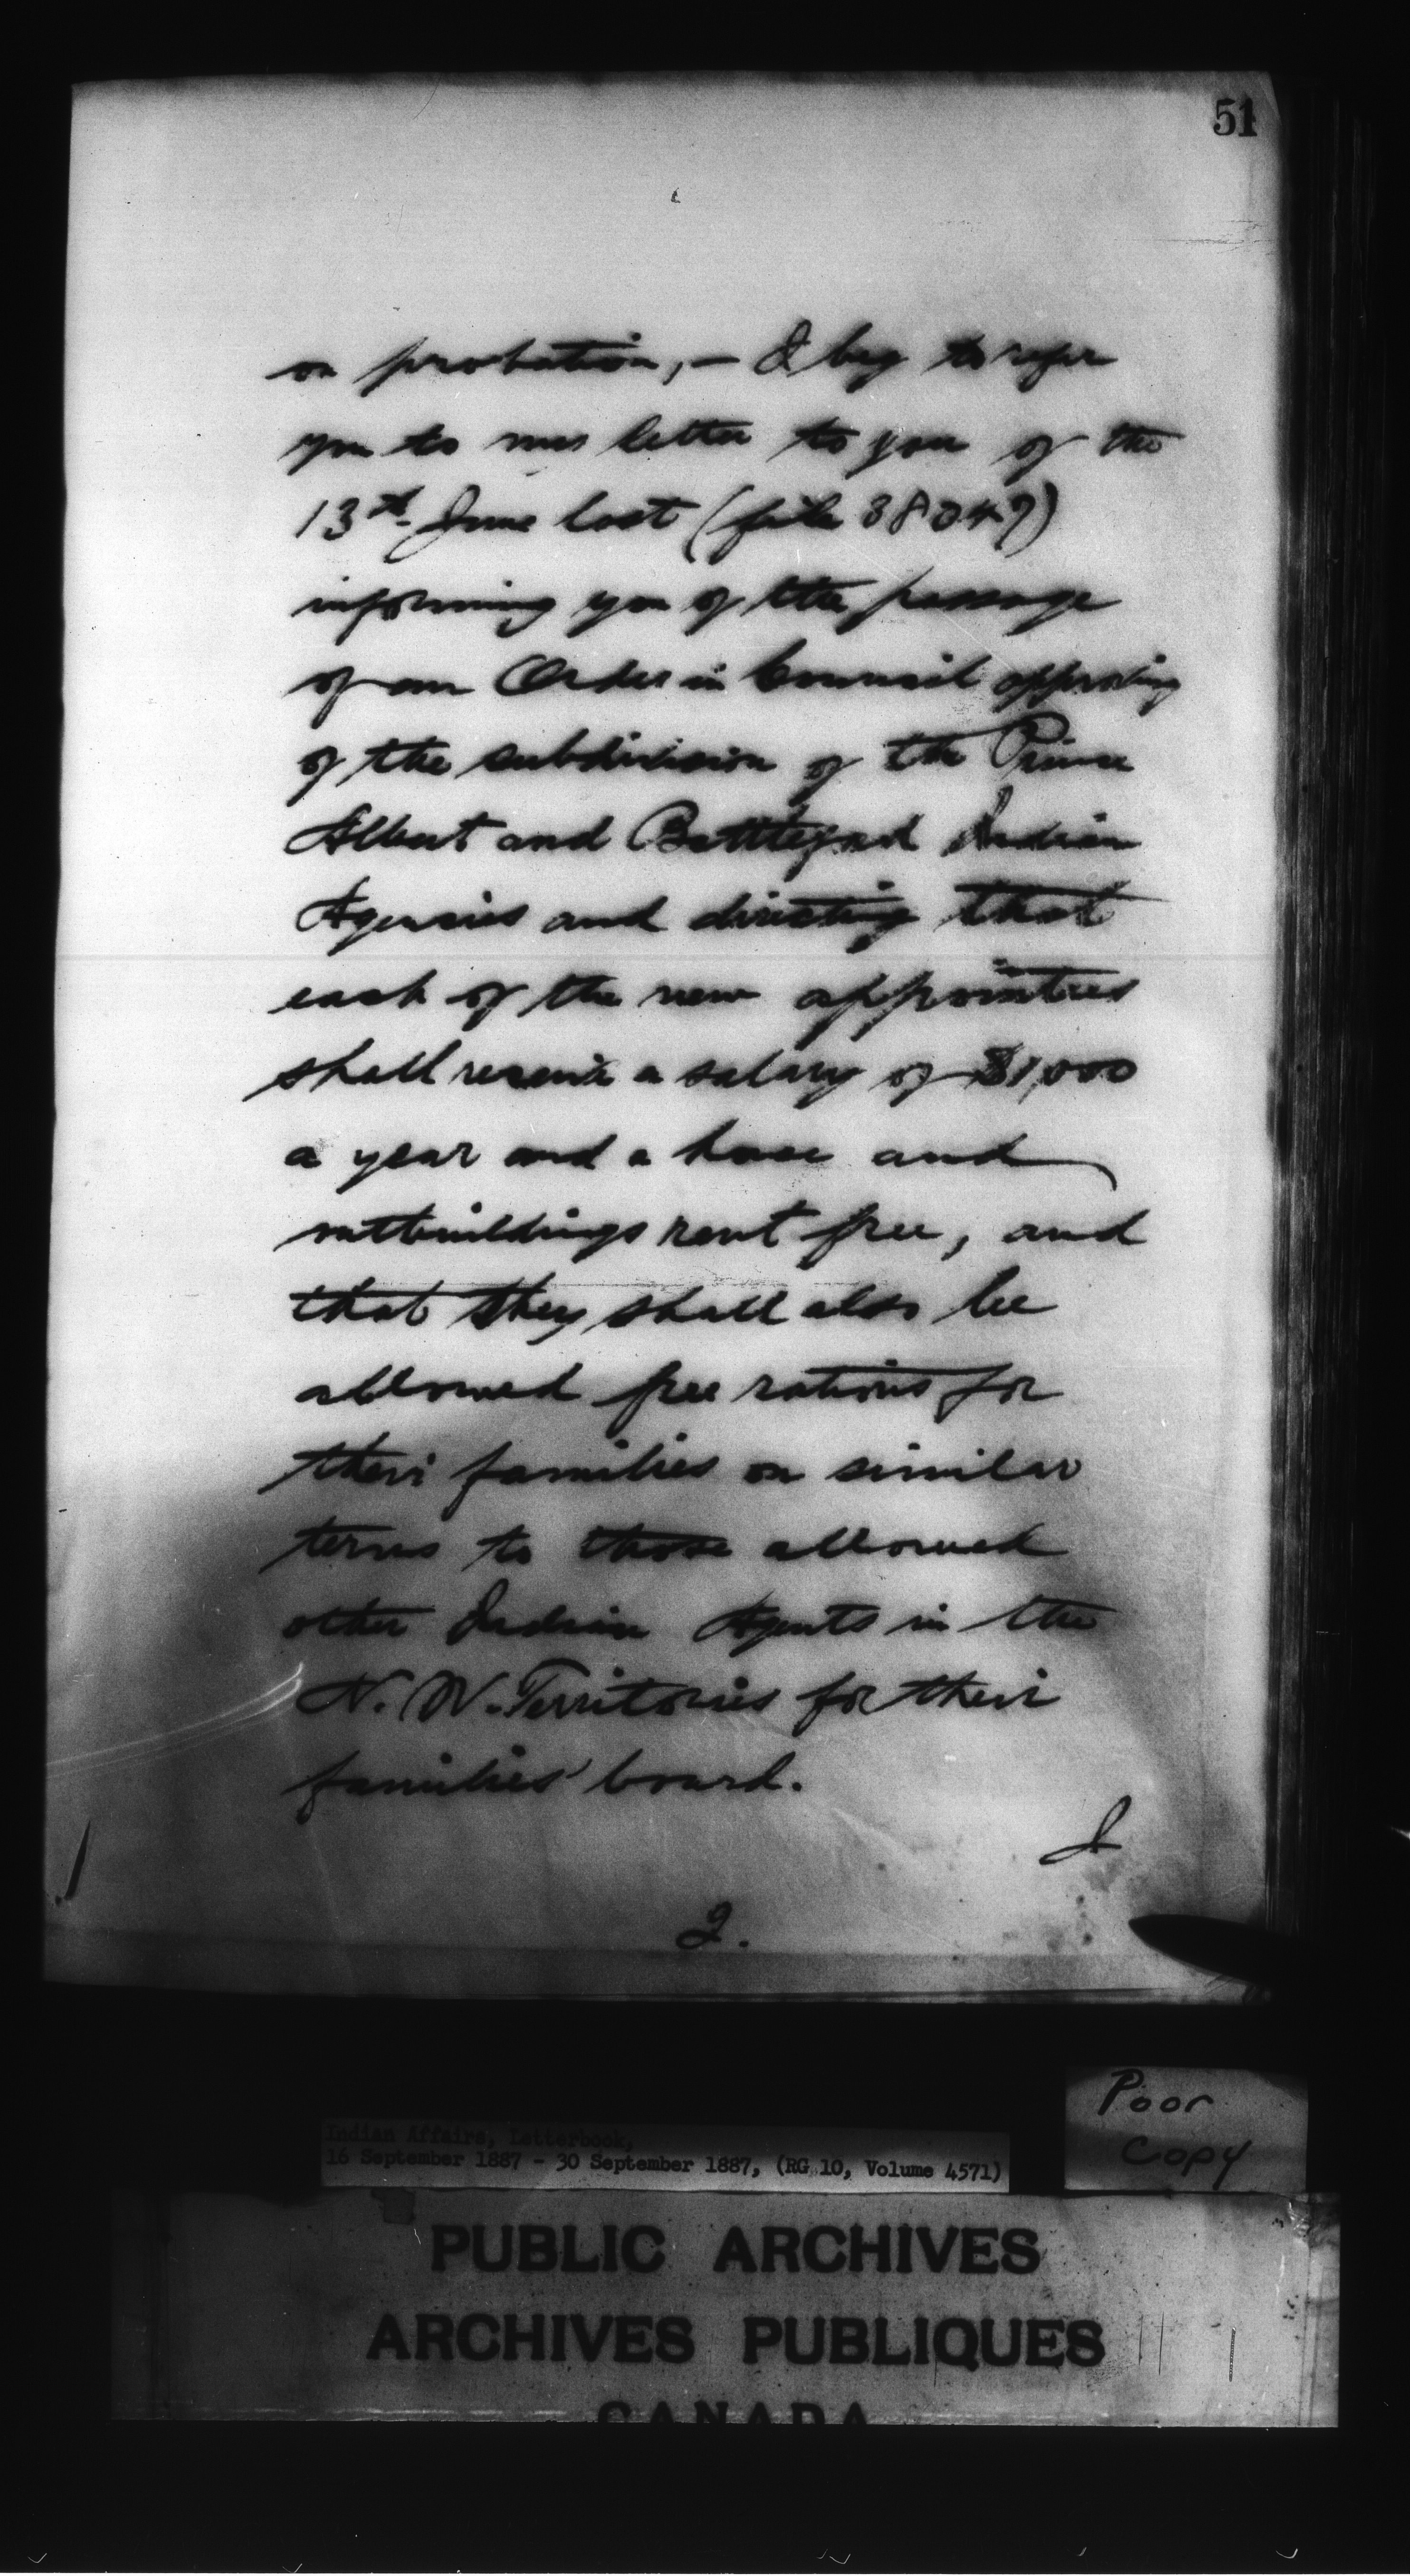 51
on probation, — I beg to refer
you to my letter to you of the
13th June last (file 38049)
informing you of the passage
of an Order in Council approving
of the subdivision of the Prince
Albert and Battleford Indian
Agencies and directing that
each of the new appointees
shall receive a salary of $1,000
a year and a house and
outbuildings rent free, and
that they shall also be
allowed free rations for
their families on similar
terms to those allowed
other Indian Agents in the
N. W. Territories for their
families' board.
I
2.
Poor
Copy
Indian Affairs, Letterbook,
16 September 1887 - 30 September 1887, (RG 10, Volume 4571)
PUBLIC ARCHIVES
ARCHIVES PUBLIQUES
CANADA